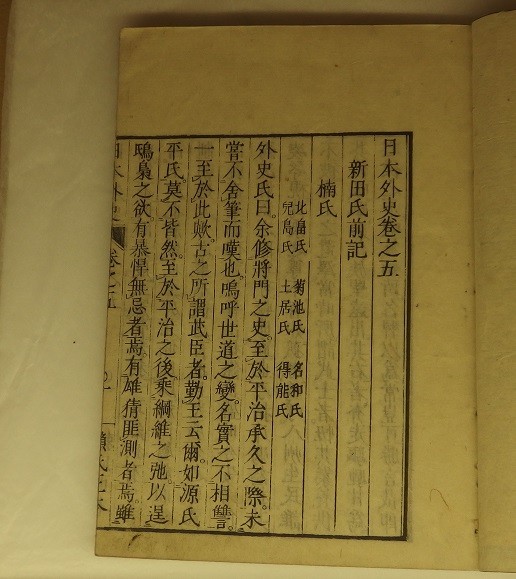 日本外史卷之五
新田氏前記
楠氏
北畠氏 菊池氏 名和氏
兒島氏 土居氏 得能氏
外史氏曰。余修將門之史。至於平治承久之際。未
嘗不舍筆而嘆也。嗚呼世道之變。名實之不相讐。
一至於此歟。古之所謂武臣者。勤王云爾。如源氏
平氏。莫不皆然。至於平治之後。乘綱維之弛。以逞
鴟梟之欲。有暴悍無忌者焉。有雄猜匪測者焉。雖
日本外史 卷之五 一